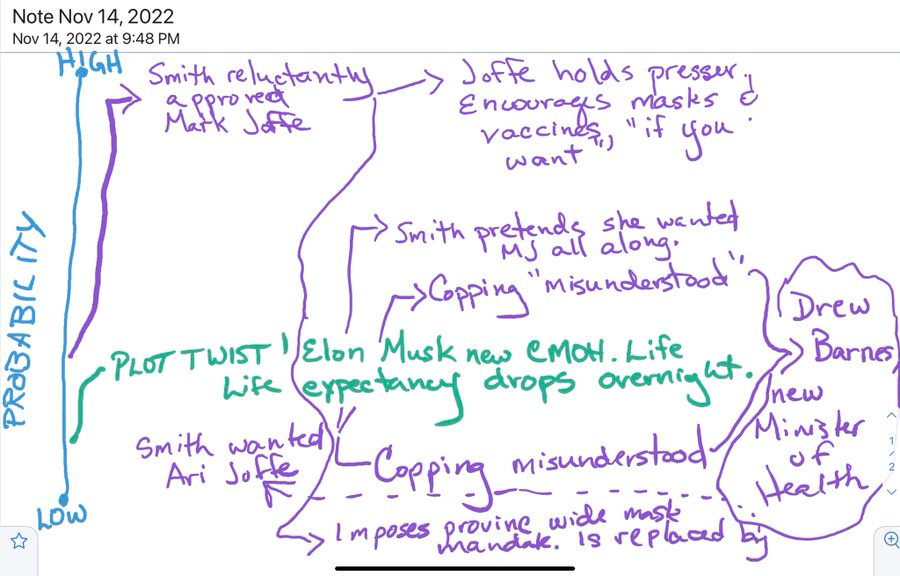 Note Nov 14, 2022
Nov 14, 2022 at 9:48 PM
HIGH
PROBABILITY
LOW
Smith reluctantly
approved
Mark Joffe
Joffe holds presser.
Encourages masks &
vaccines, "if you
want"
Smith pretends she wanted
MJ all along.
Copping "misunderstood"
PLOT TWIST! Elon Musk new CMOH. Life
Life expectancy drops overnight.
Drew
Barnes
new
Minister
of
Health
Smith wanted
Ari Joffe
Copping misunderstood
Imposes provine wide mask
mandate. is replaced by
1
2